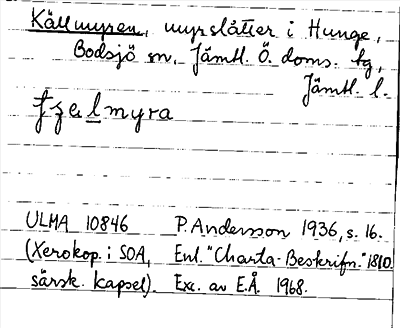 Källmyren, myrslåtter i Hunge,
Bodsjö sn, Jämtl. Ö. doms. tg,
Jämtl. l.
Fzelmyra
ULMA 10846 P. Andersson 1936, s. 16.
(Xerokop. i SOA, Enl. "Charta-Beskrifn." 1810.
särsk. kapsel). Exc. av E.Å. 1968.